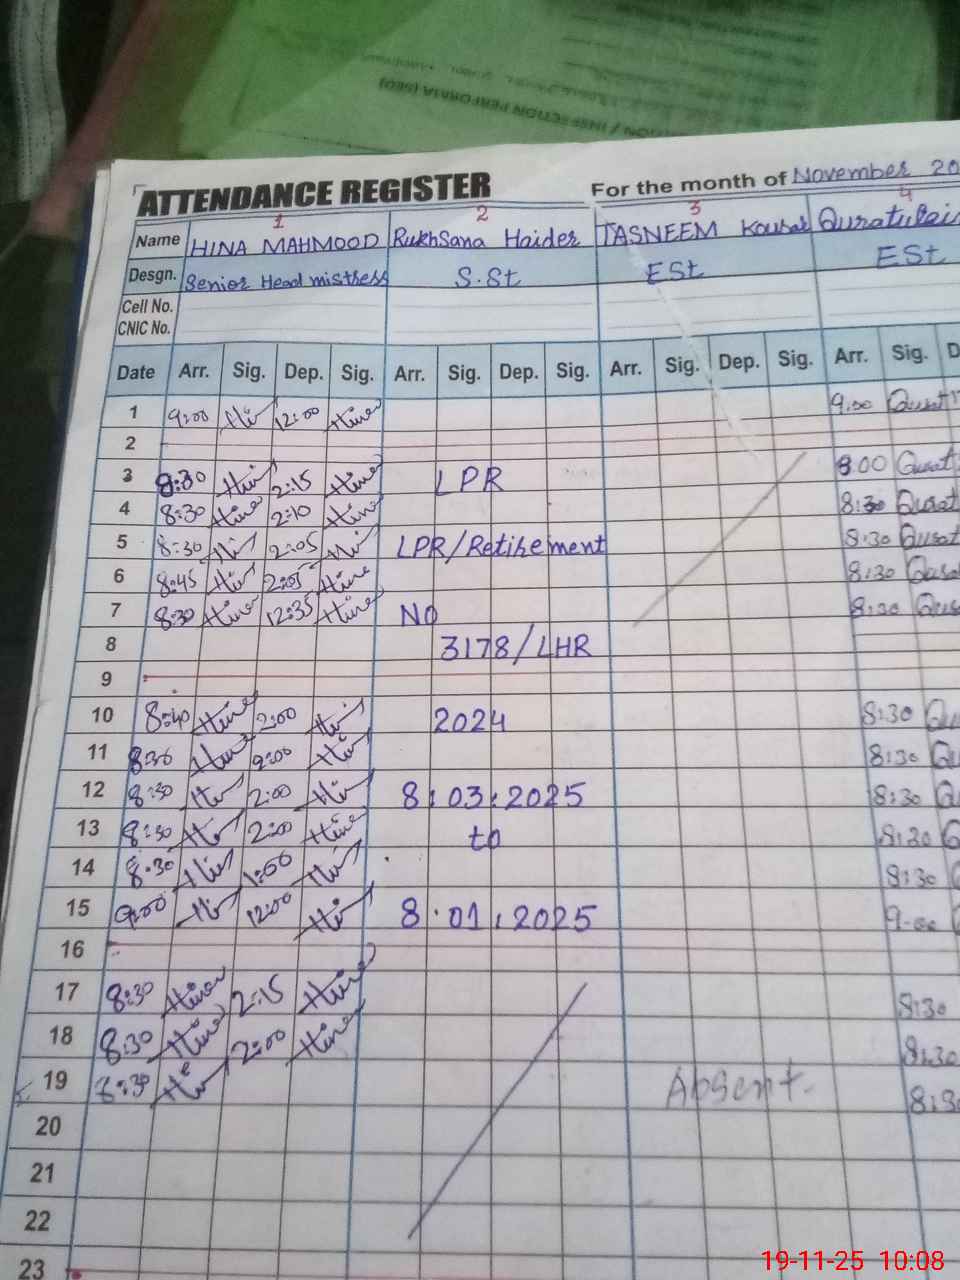 ATTENDANCE REGISTER
For the month of November 20
1 2 3 4
Name HINA MAHMOOD Rukhsana Haider TASNEEM Kousar Quratulai
Desgn. Senior Headmistress S.St ESt ESt
Cell No.
CNIC No.
Date Arr. Sig. Dep. Sig. Arr. Sig. Dep. Sig. Arr. Sig. Dep. Sig. Arr. Sig. D
1 9:00 12:00 Hina 9:00 Qurat
2
3 8:30 2:15 Hina LPR 8:00 Qurat
4 8:30 Hina 2:10 Hina 8:30 Qurat
5 8:30 2:05 LPR/Retirement 8:30 Qurat
6 8:45 2:05 Hina 8:30 Qurat
7 8:30 Hina 12:35 Hina No 8:30
8 3178/LHR
9
10 8:40 Hina 2:00 2024 8:30
11 8:30 Hina 2:00 8:30
12 8:30 2:00 8:03:2025 8:30
13 8:30 2:00 Hina to 8:30
14 8:30 1:00 8:30
15 9:00 12:00 8.01.2025 9:00
16
17 8:30 Hina 2:15 Hina 8:30
18 8:30 Hina 2:00 Hina 8:30
19 8:30 Absent. 8:3
20
21
22
23
19-11-25 10:08